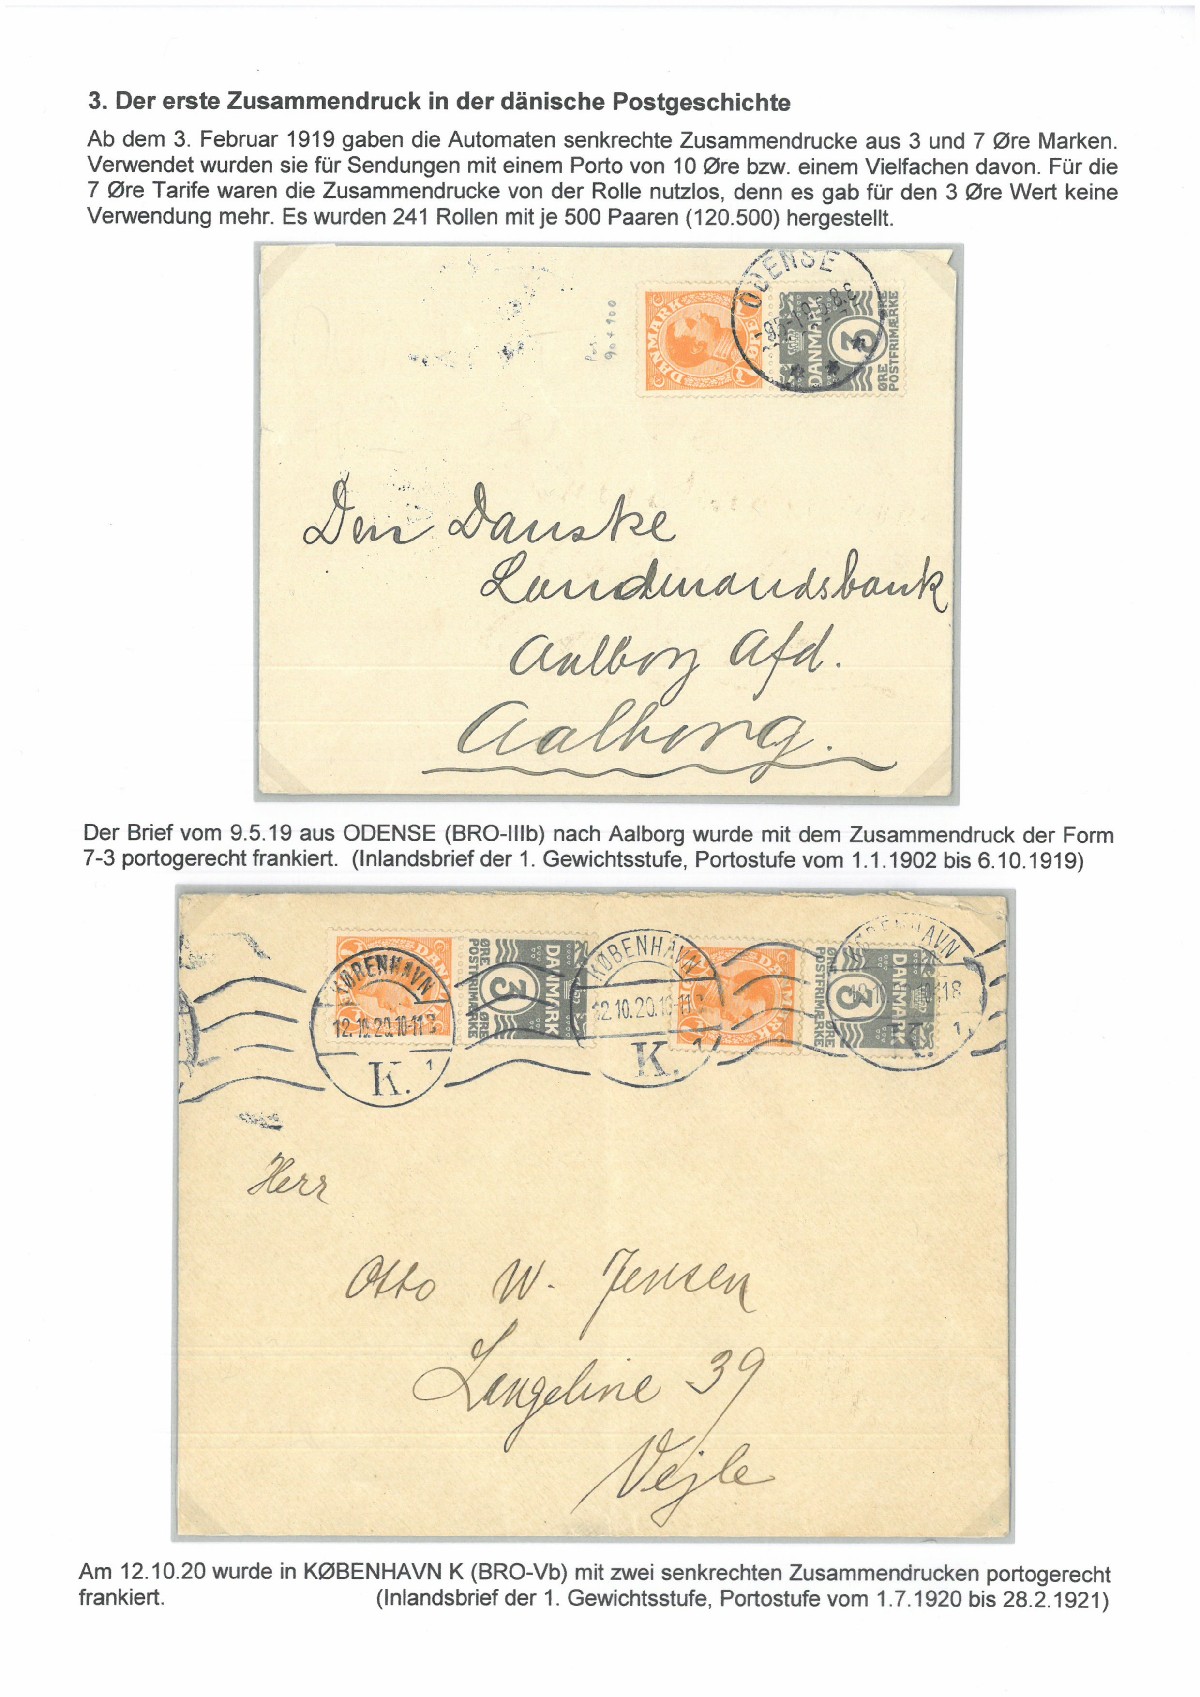 3. Der erste Zusammendruck in der dänische Postgeschichte
Ab dem 3. Februar 1919 gaben die Automaten senkrechte Zusammendrucke aus 3 und 7 Øre Marken.
Verwendet wurden sie für Sendungen mit einem Porto von 10 Øre bzw. einem Vielfachen davon. Für die
7 Øre Tarife waren die Zusammendrucke von der Rolle nutzlos, denn es gab für den 3 Øre Wert keine
Verwendung mehr. Es wurden 241 Rollen mit je 500 Paaren (120.500) hergestellt.
ODENSE
DANMARK
7 ØRE
DANMARK
3
ØRE ØRE
POSTFRIMÆRKE
90 + 100
Den Danske
Landmandsbank
Aalborg Afd.
Aalborg.
Der Brief vom 9.5.19 aus ODENSE (BRO-IIIb) nach Aalborg wurde mit dem Zusammendruck der Form
7-3 portogerecht frankiert. (Inlandsbrief der 1. Gewichtsstufe, Portostufe vom 1.1.1902 bis 6.10.1919)
KØBENHAVN
12.10.20.10-11
K. 1
DANMARK
DANMARK
3
ØRE ØRE
POSTFRIMÆRKE
KØBENHAVN
12.10.20.10-11
K. 1
DANMARK
DANMARK
3
ØRE ØRE
POSTFRIMÆRKE
KØBENHAVN
K. 1
Herr
Otto W. Jensen
Langeline 39
Vejle
Am 12.10.20 wurde in KØBENHAVN K (BRO-Vb) mit zwei senkrechten Zusammendrucken portogerecht
frankiert. (Inlandsbrief der 1. Gewichtsstufe, Portostufe vom 1.7.1920 bis 28.2.1921)